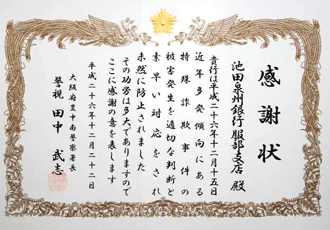 感謝状
池田泉州銀行服部支店 殿
貴行は平成二十六年十二月十五日
近年多発傾向にある
特殊詐欺事件の
被害発生を適切な判断と
素早い対応をされ
未然に防止されました
その功労は多大でありますので
ここに感謝の意を表します
平成二十六年十二月二十二日
大阪府豊中南警察署長
警視 田中 武志